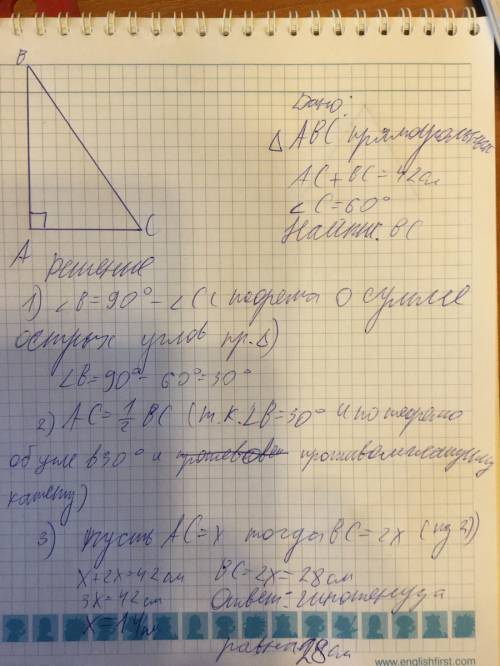 B
Дано:
Δ ABC прямоугольный
AC + BC = 42 см
∠C = 60°
Найти: BC
A
C
решение
1) ∠B = 90° - ∠C ( теорема о сумме
острых углов пр. Δ)
∠B = 90° - 60° = 30°
2) AC = 1/2 BC (т.к. ∠B = 30° и по теореме
об угле в 30° и противолежащему
катету)
3) пусть AC = x тогда BC = 2x (из 2))
x + 2x = 42 см
BC = 2x = 28 см
3x = 42 см
Ответ: гипотенуза
x = 14 см
равна 28 см
www.englishfirst.com